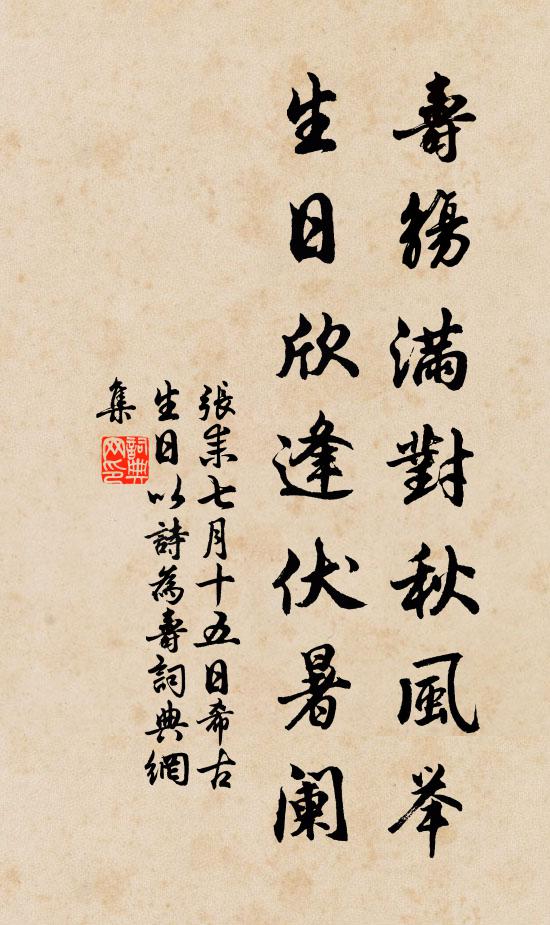 壽觴滿對秋風举
生日欣逢伏暑阑
張耒七月十五日希古
生日以詩為壽詞典網
集
詞典网印